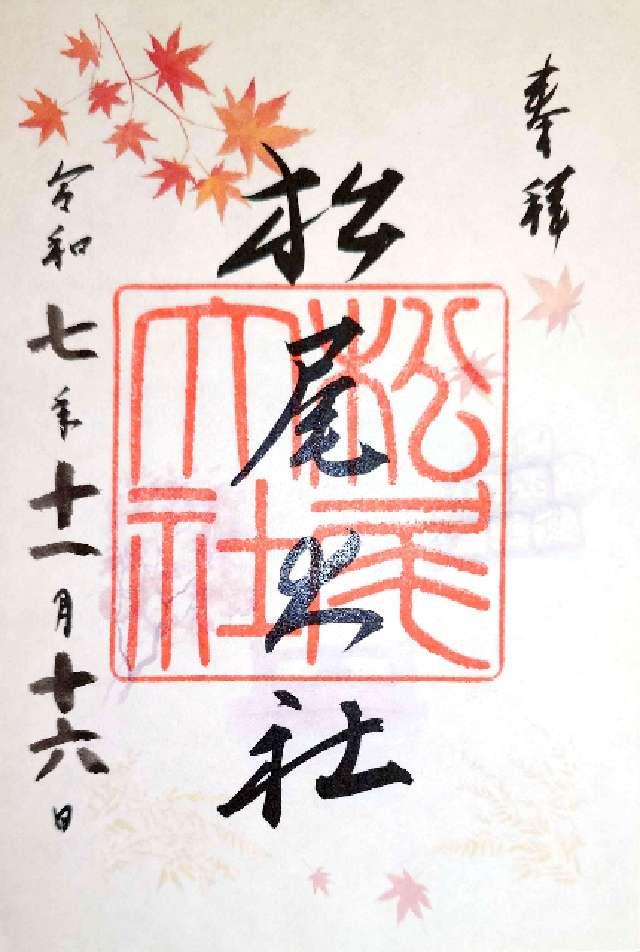 奉拝
松尾大社
松尾大社
令和七年十一月十六日